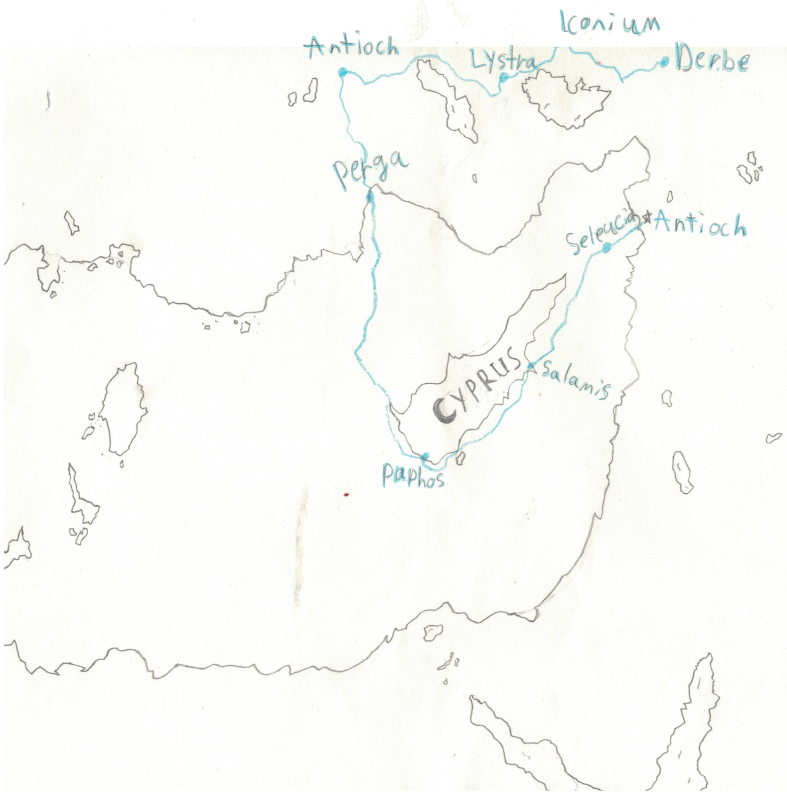 Iconium
Antioch
Lystra
Derbe
Perga
Seleucia
Antioch
CYPRUS
Salamis
Paphos